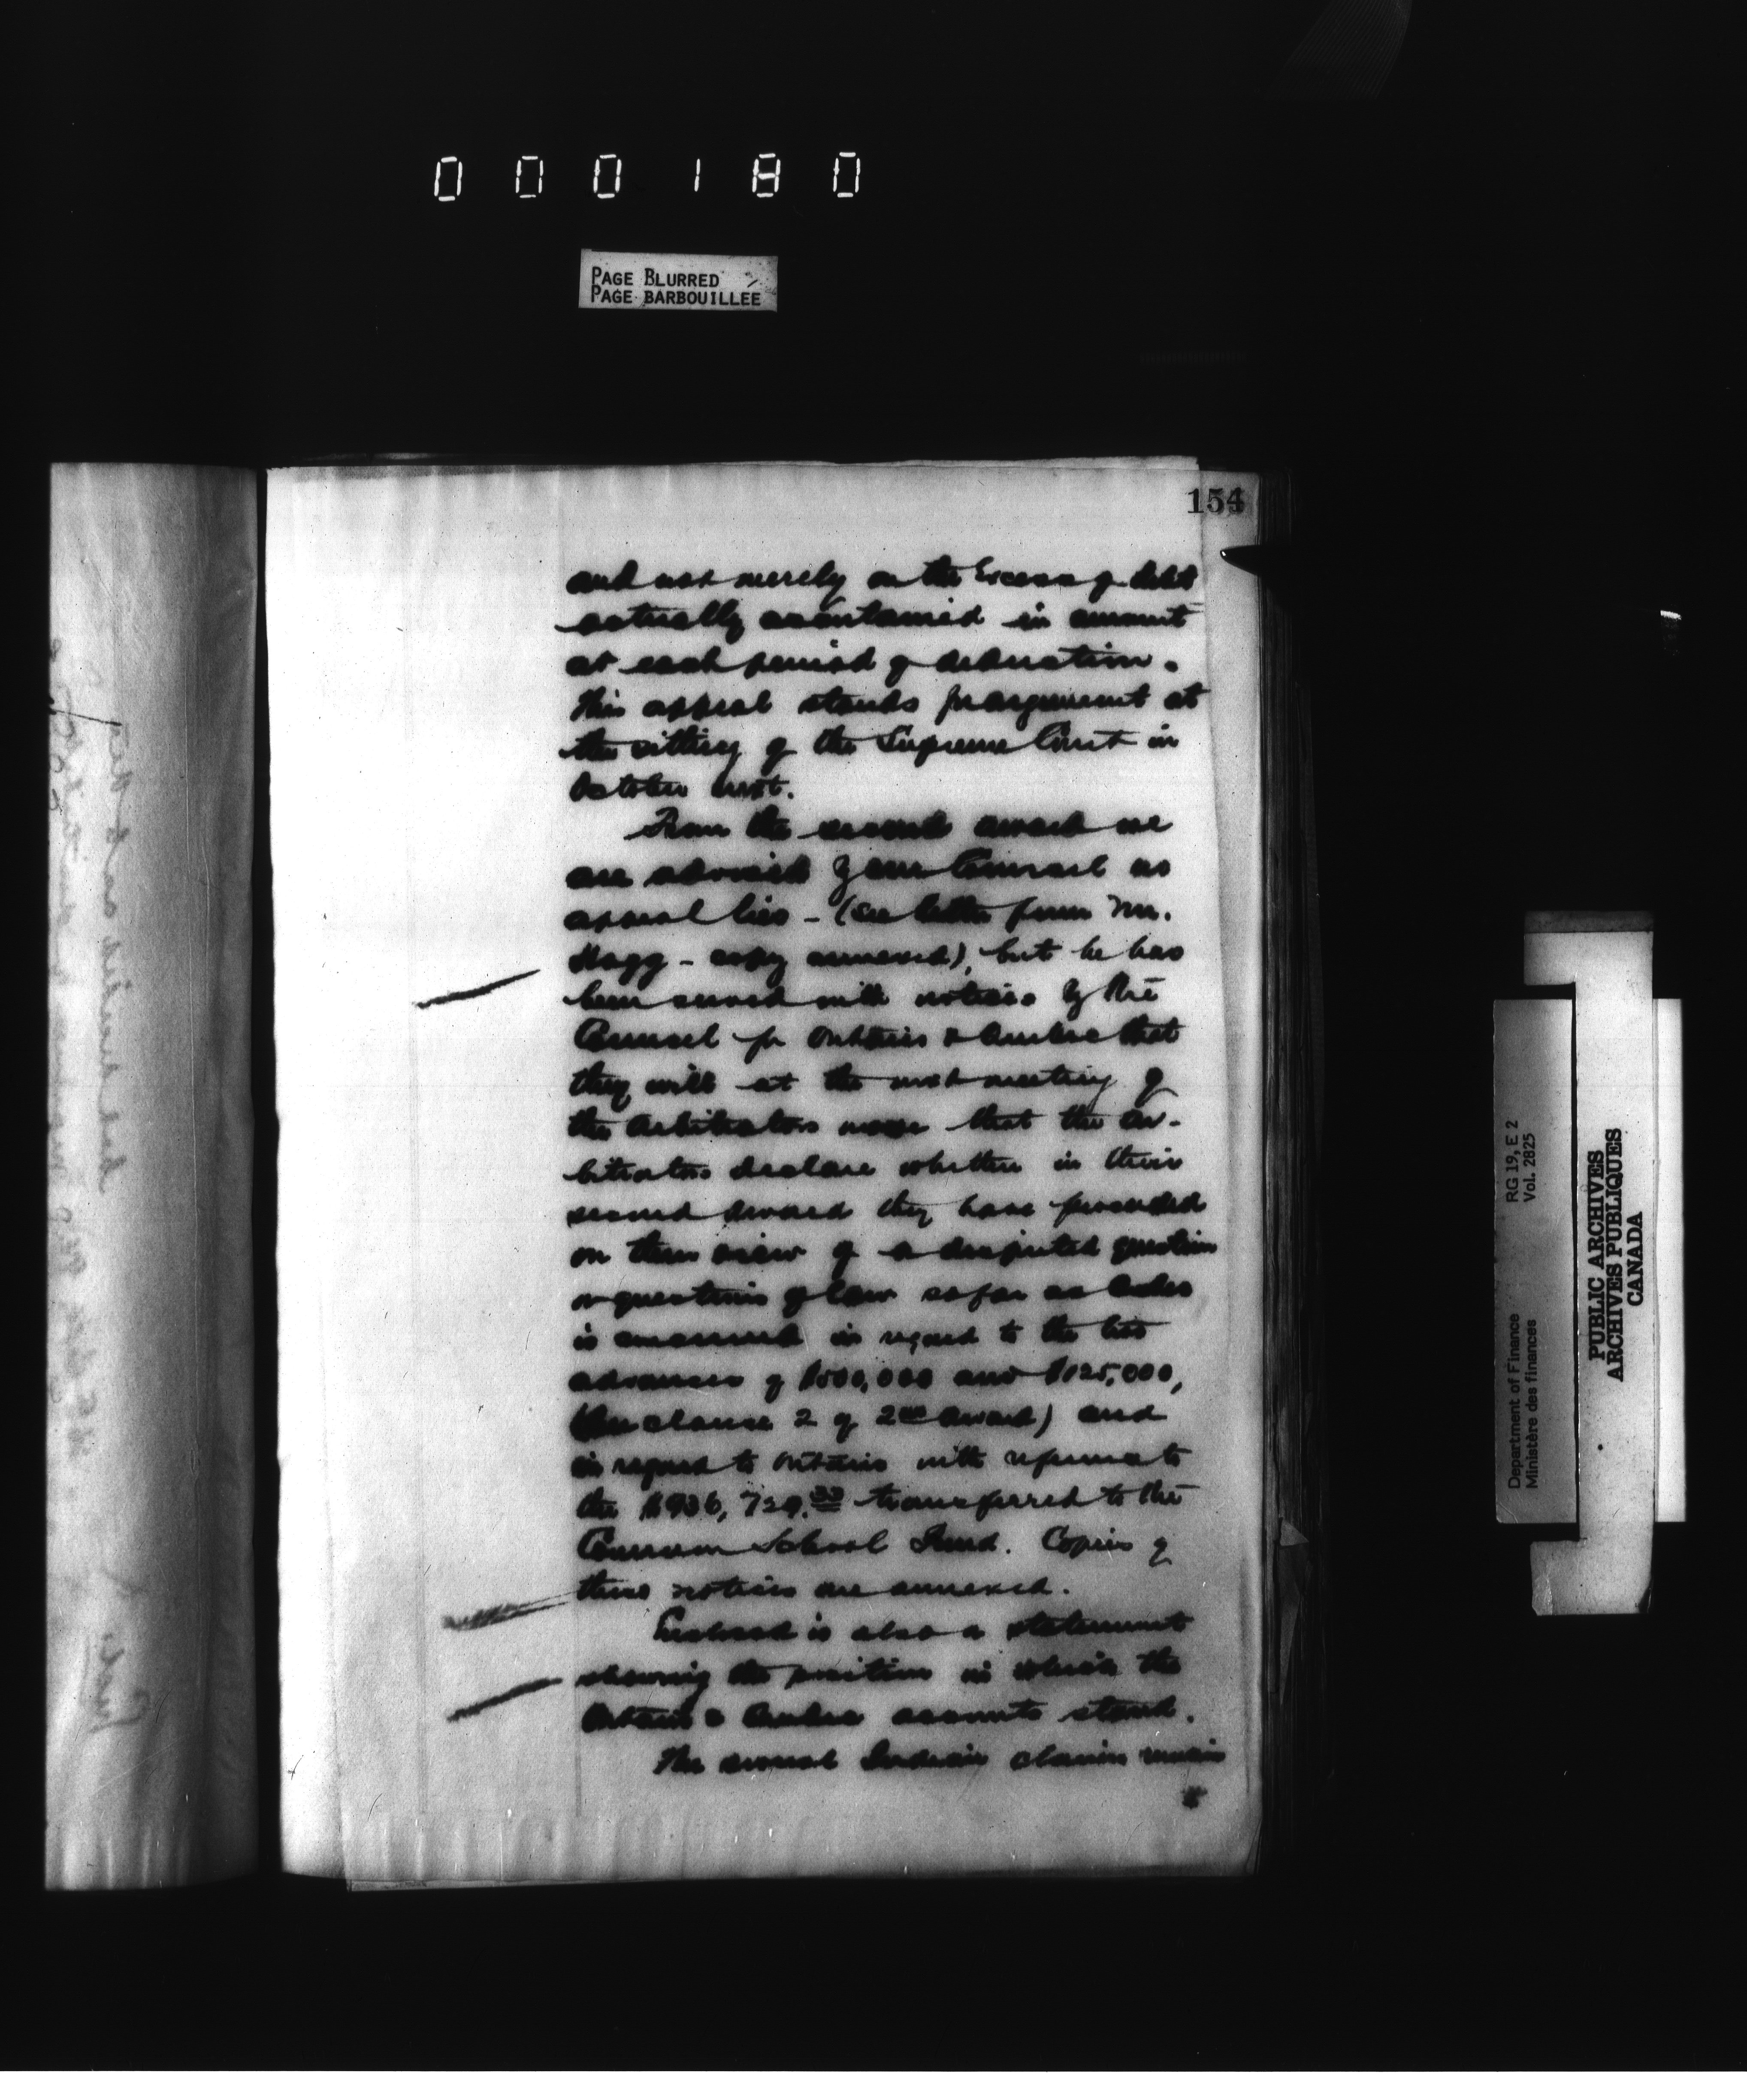 000180
PAGE BLURRED
PAGE BARBOUILLEE
154
and not merely on the Excess of debt
actually ascertained in amount
at each period of deduction.
This appeal stands for argument at
the sitting of the Supreme Court in
October next.
From the second award we
are advised by our Counsel no
appeal lies - (see letter from Mr.
Hogg - copy annexed), but he has
been served with notices by the
Counsel for Ontario & Quebec that
they will at the next meeting of
the Arbitrators move that the Ar-
bitrators declare whether in their
second award they have proceeded
on their view of a disputed question
or questions of law so far as
is concerned in regard to the two
advances of $500,000 and $125,000,
clause 2 of 2nd award) and
in regard to Ontario with reference to
the transferred to the
Common School Fund. Copies of
these notices are annexed.
Enclosed is also a statement
showing the position in which the
Ontario & Quebec accounts stand.
The several Indian claims remain
RG 19, E 2
Vol. 2825
Department of Finance
Ministère des finances
PUBLIC ARCHIVES
ARCHIVES PUBLIQUES
CANADA